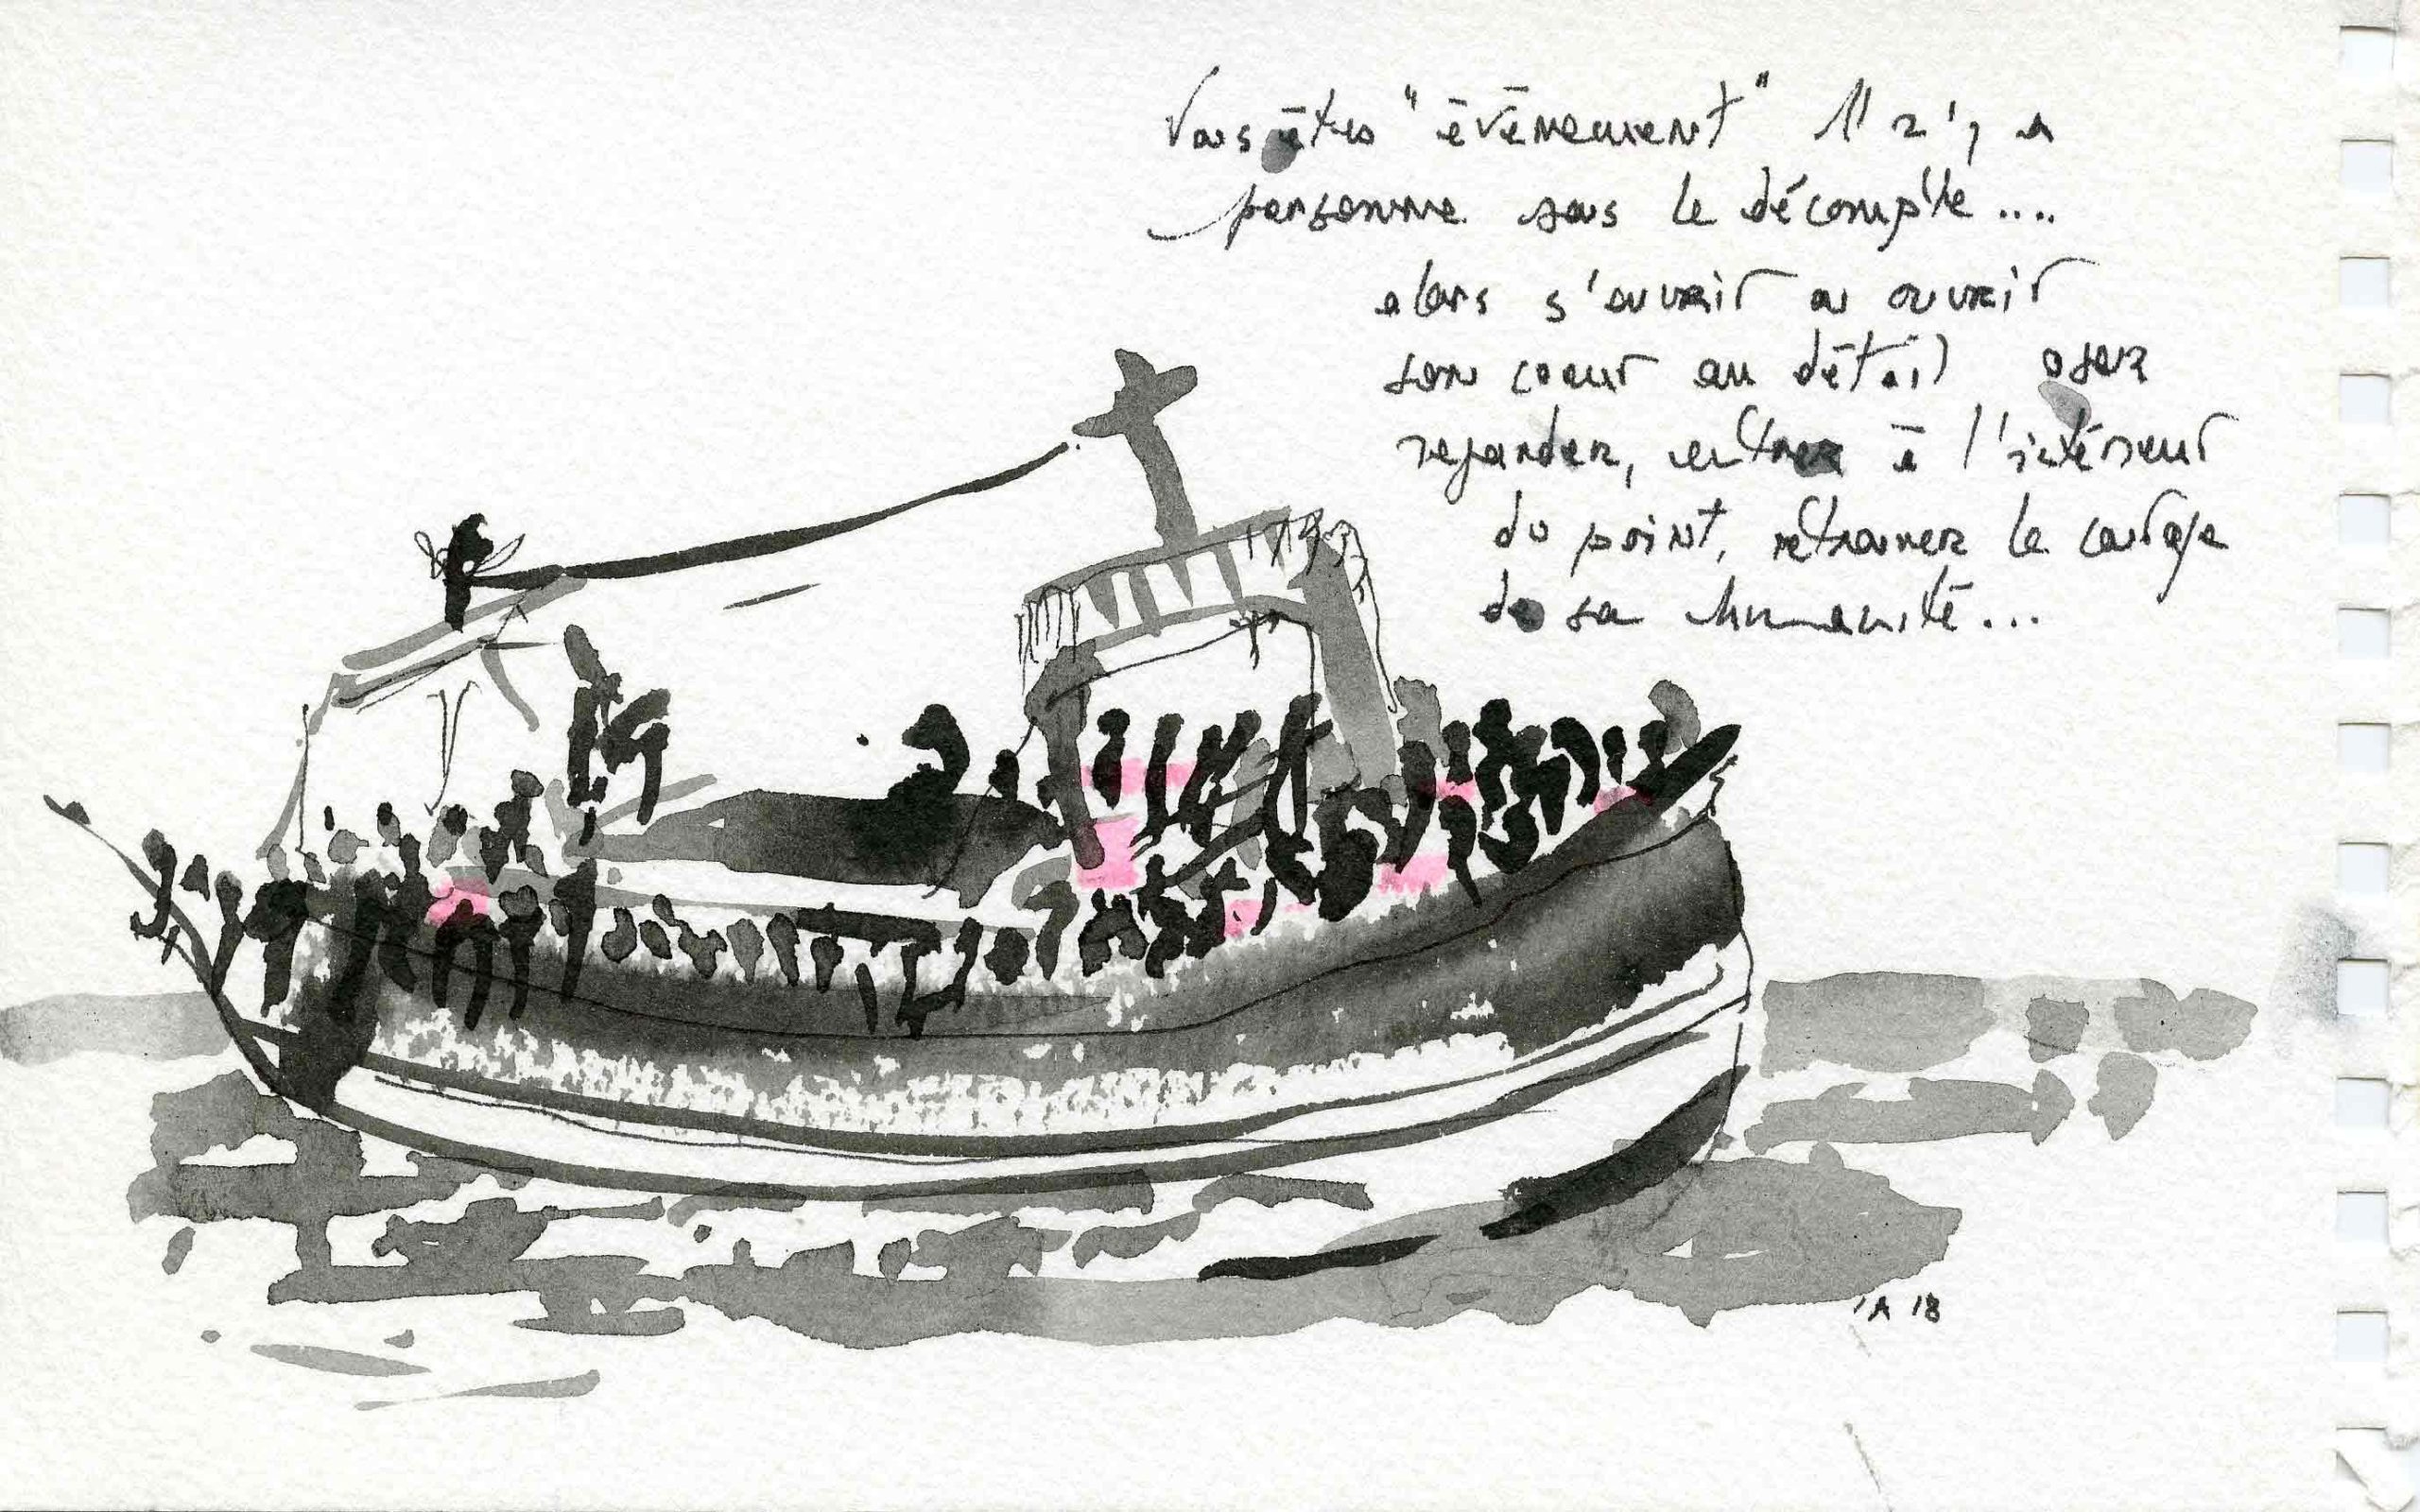 Vous êtes "événement" Il n'y a
personne sous le décompte....
alors s'ouvrir ou ouvrir
son coeur au détail oser
regarder, entrer à l'intérieur
du point, retrouver le courage
de sa humanité...
'A 18